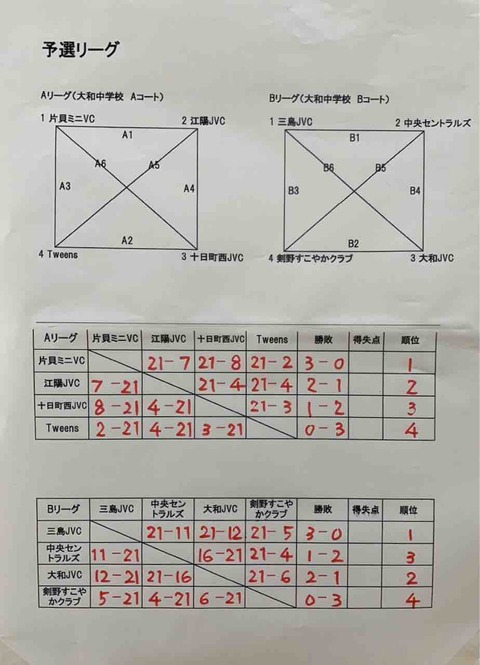 予選リーグ
Aリーグ(大和中学校 Aコート) Bリーグ(大和中学校 Bコート)
1 片貝ミニVC 2 江陽JVC 1 三島JVC 2 中央セントラルズ
A1 B1
A6 A5 B6 B5
A3 A4 B3 B4
A2 B2
4 Tweens 3 十日町西JVC 4 剣野すこやかクラブ 3 大和JVC
Aリーグ 片貝ミニVC 江陽JVC 十日町西JVC Tweens 勝敗 得失点 順位
片貝ミニVC 21-7 21-8 21-2 3-0 1
江陽JVC 7-21 21-4 21-4 2-1 2
十日町西JVC 8-21 4-21 21-3 1-2 3
Tweens 2-21 4-21 3-21 0-3 4
Bリーグ 三島JVC 中央セントラルズ 大和JVC 剣野すこやかクラブ 勝敗 得失点 順位
三島JVC 21-11 21-12 21-5 3-0 1
中央セントラルズ 11-21 16-21 21-4 1-2 3
大和JVC 12-21 21-16 21-6 2-1 2
剣野すこやかクラブ 5-21 4-21 6-21 0-3 4